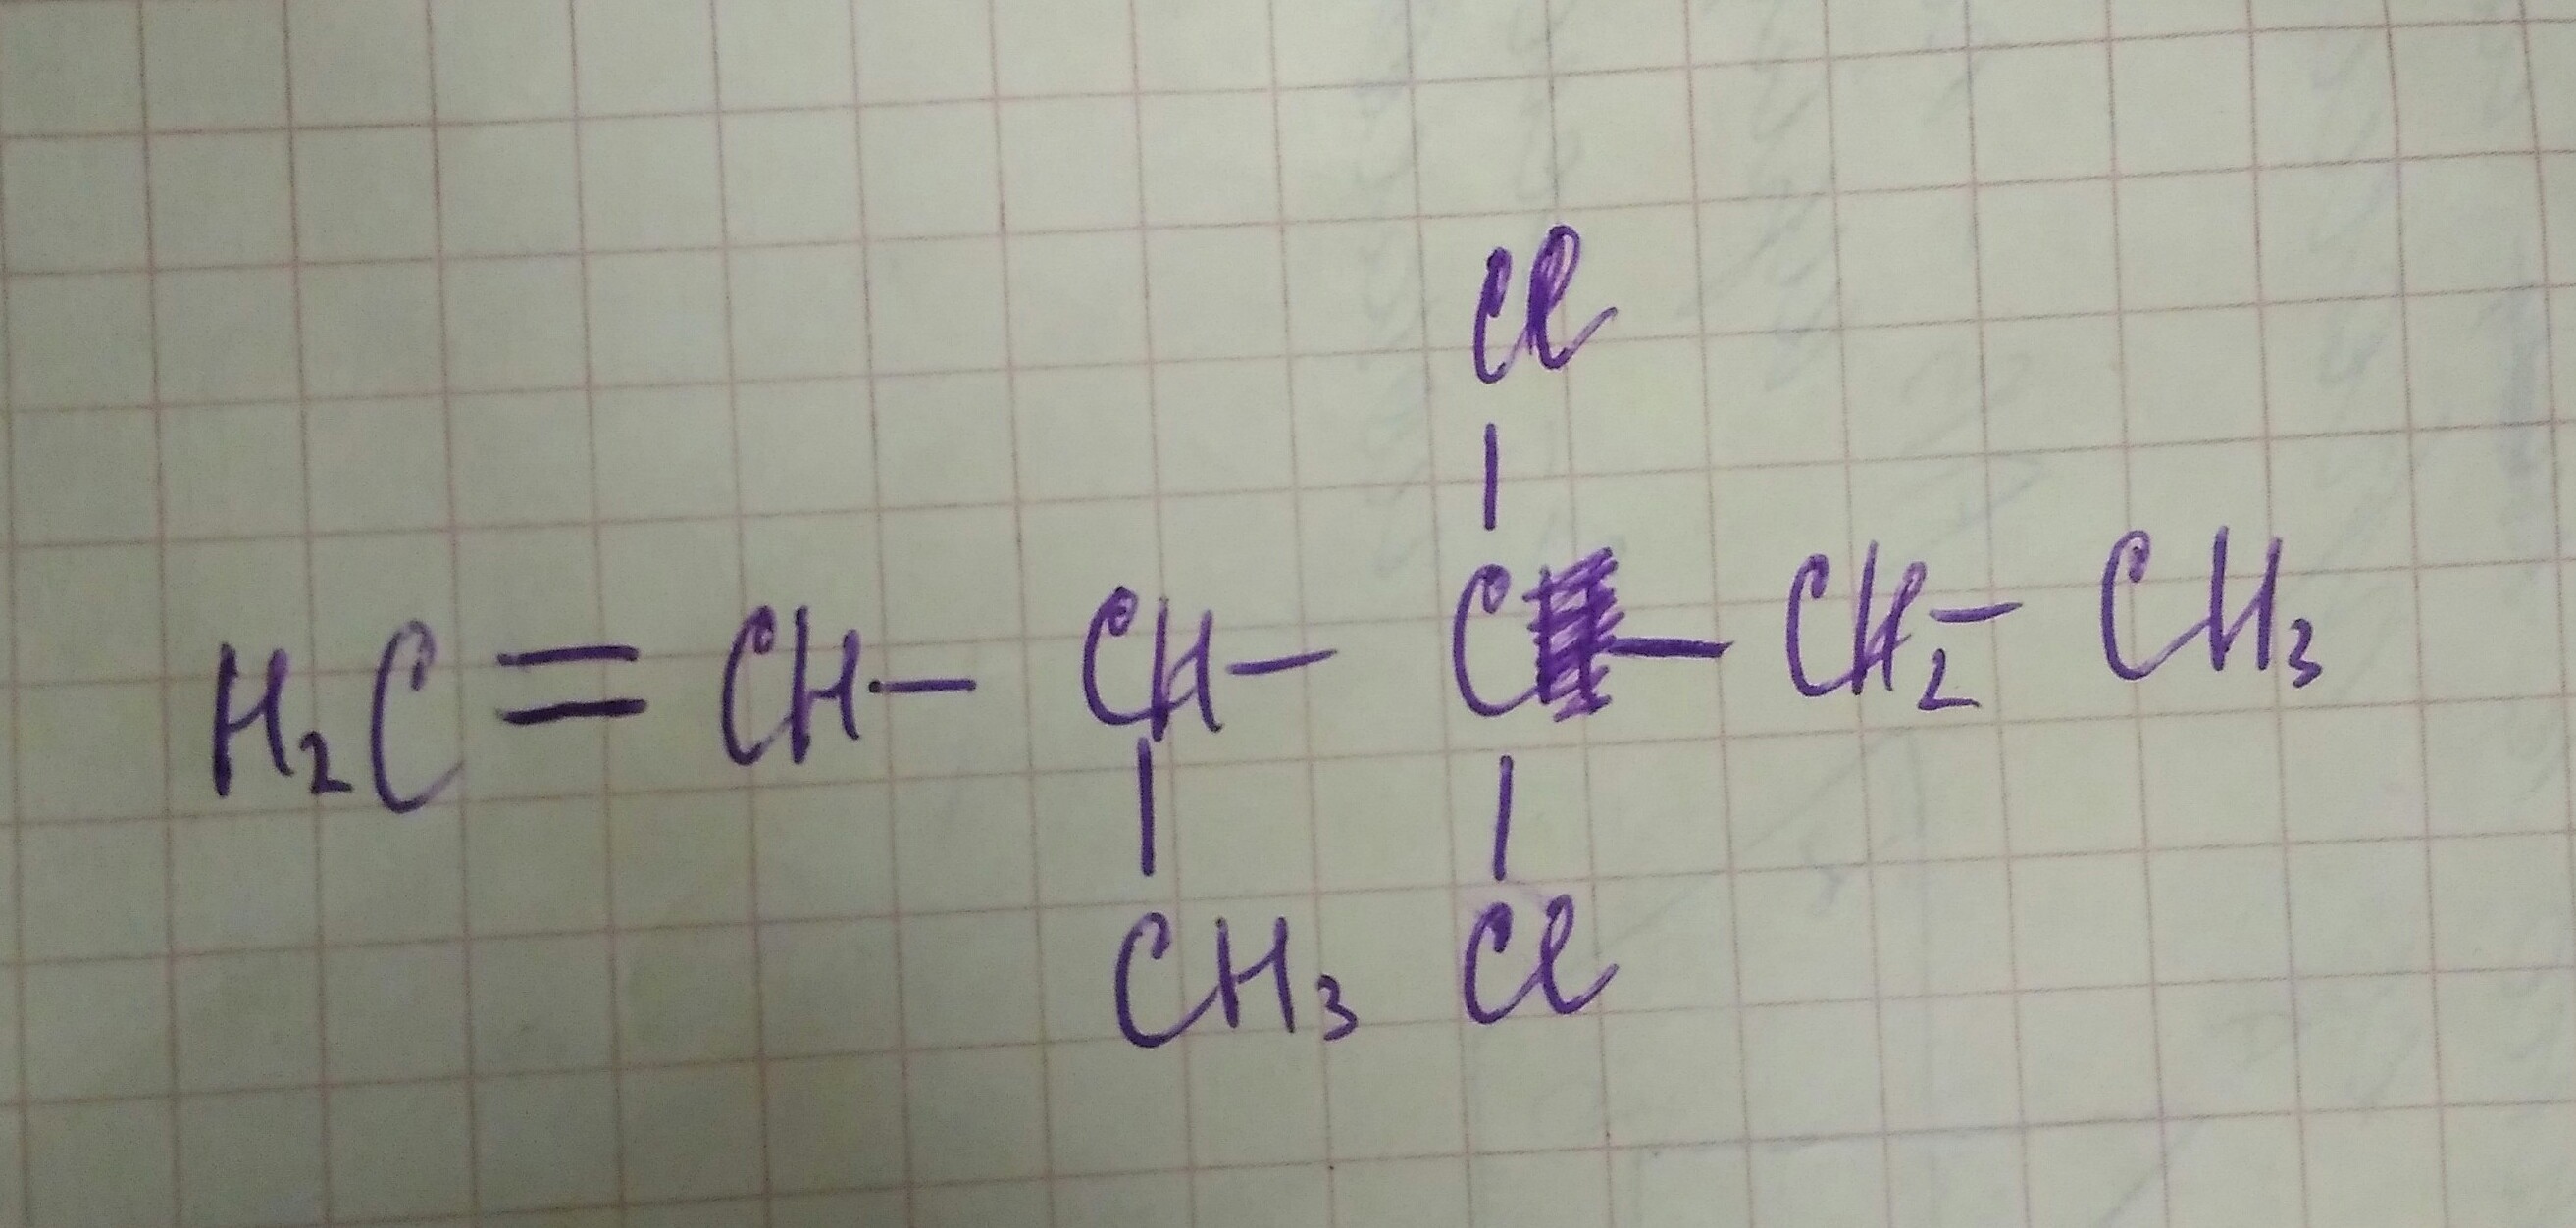 Cl
H₂C=CH-CH-C-CH₂-CH₃
CH₃ Cl